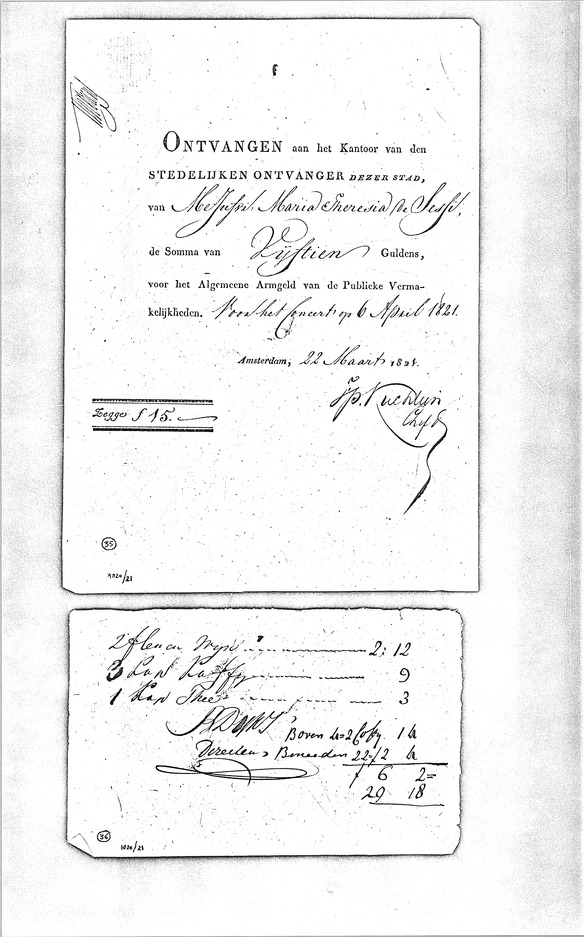 ONTVANGEN aan het Kantoor van den
STEDELIJKEN ONTVANGER DEZER STAD,
van Mejufvr. Maria Theresia de Sessi,
de Somma van Vijftien Guldens,
voor het Algemeene Armgeld van de Publieke Verma-
kelijkheden. Voor het Concert op 6 April 1821.
Amsterdam, 22 Maart 1821.
Zegge f 15.
35
1820/21
2 flessen Wijn 2: 12
3 Kop Koffy 9
1 Kop Thee 3
Boven 4=2 Coffy 14
Beneeden 22-12 4
f 6 2=
29 18
36
1820/21